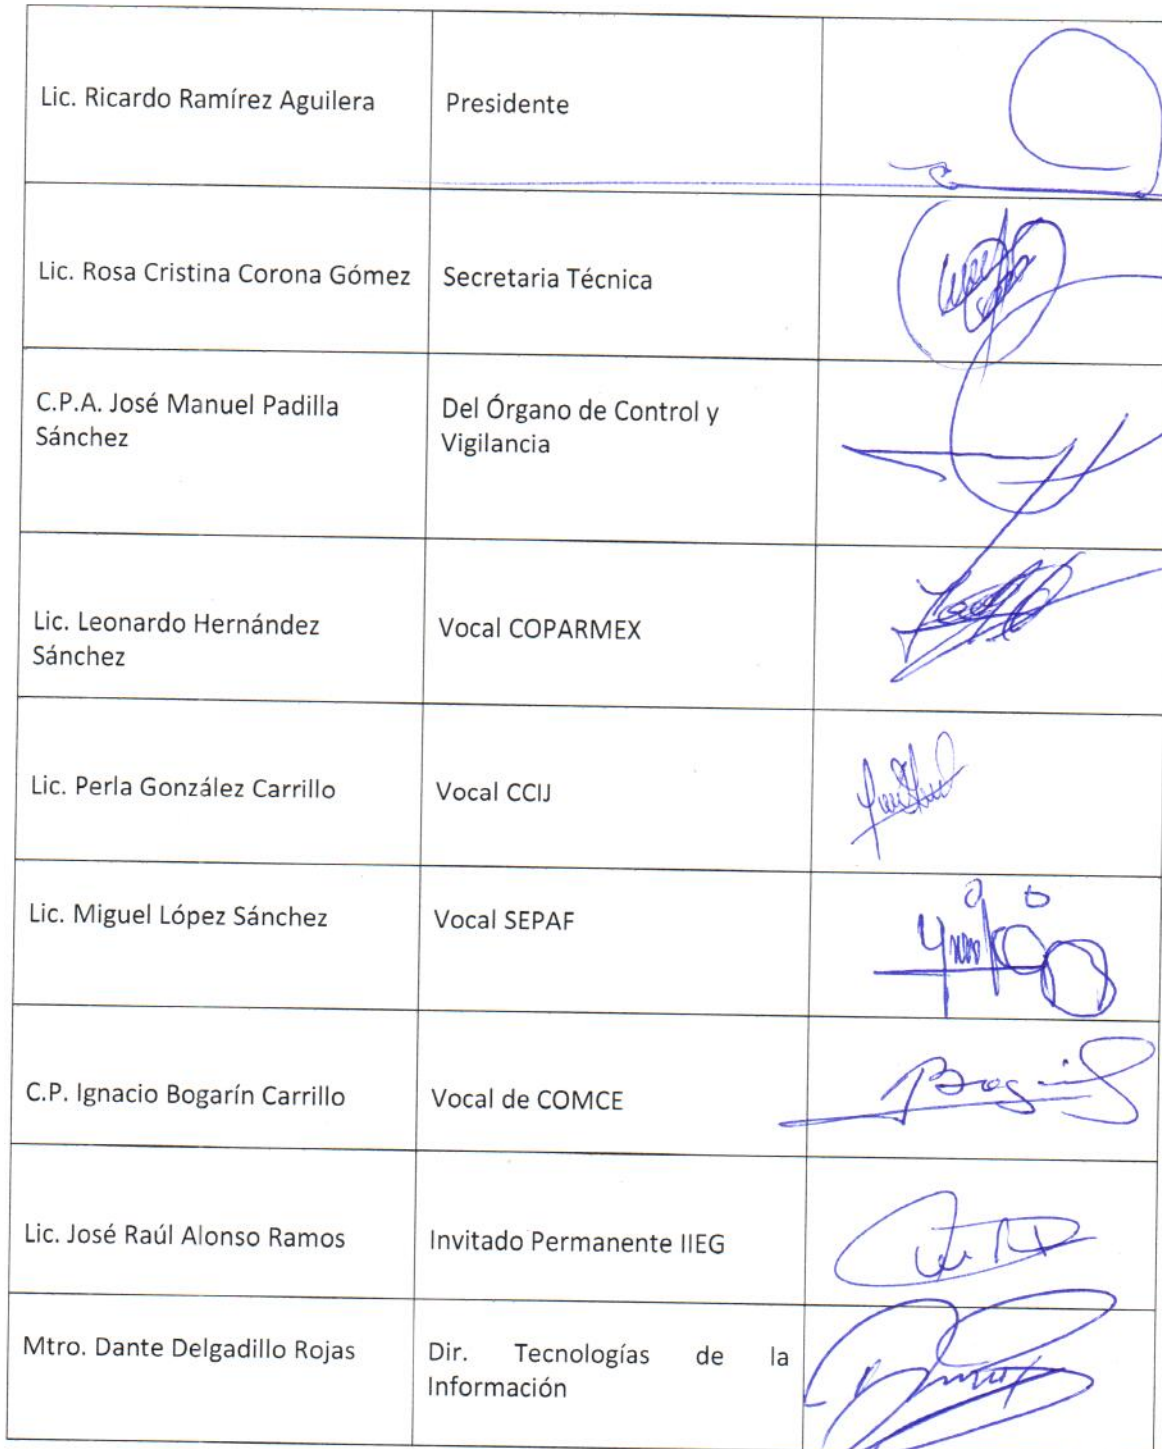 Lic. Ricardo Ramírez Aguilera
Presidente
Lic. Rosa Cristina Corona Gómez
Secretaria Técnica
C.P.A. José Manuel Padilla
Sánchez
Del Órgano de Control y
Vigilancia
Lic. Leonardo Hernández
Sánchez
Vocal COPARMEX
Lic. Perla González Carrillo
Vocal CCIJ
Lic. Miguel López Sánchez
Vocal SEPAF
C.P. Ignacio Bogarín Carrillo
Vocal de COMCE
Lic. José Raúl Alonso Ramos
Invitado Permanente IIEG
Mtro. Dante Delgadillo Rojas
Dir. Tecnologías de la
Información